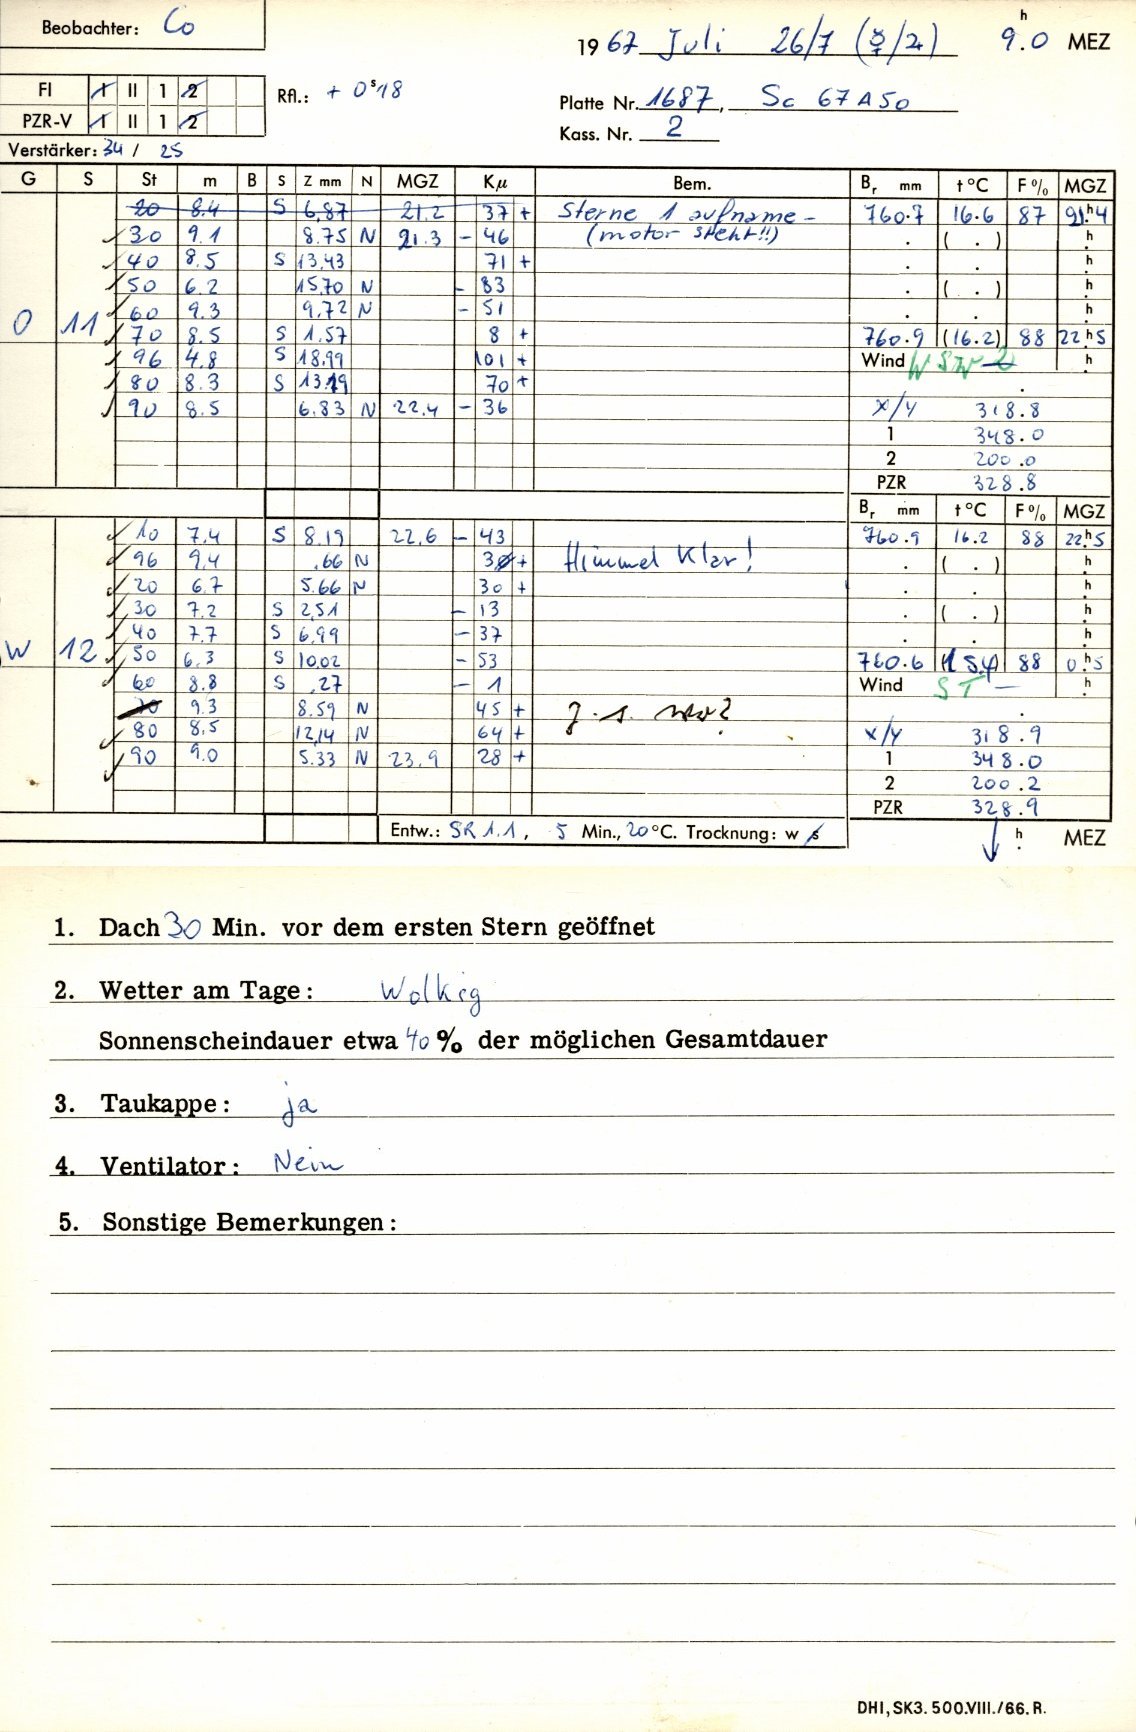 Beobachter: Co
1967 Juli 26/7 (☿/♃) 9.h0 MEZ
FI I II 1 2
Rfl.: + 0s18
PZR-V I II 1 2
Platte Nr. 1687, Sc 67A50
Kass. Nr. 2
Verstärker: 34 / 25
G S St m B S Z mm N MGZ Kµ Bem. Br mm t °C F % MGZ
20 8.4 S 6,87 21,2 37 + Sterne 1 aufname - 760.7 16.6 87 21.h4
30 9.1 8.75 N 21.3 - 46 (motor steht!!) . ( . ) h
40 8.5 S 13,43 71 + . . h
50 6.2 15,70 N - 83 . ( . ) h
60 9.3 9,72 N - 51 . . h
O 11 70 8.5 S 1.57 8 + 760.9 (16.2) 88 22.h5
96 4.8 S 18,99 101 + Wind WSW 2 h
80 8.3 S 13.19 70 +
90 8.5 6.83 N 22.4 - 36 x/y 318.8
1 348.0
2 200.0
PZR 328.8
Br mm t °C F % MGZ
10 7,4 S 8.19 22,6 - 43 760.9 16.2 88 22.h5
96 9,4 .66 N 3 + Himmel Klar! . ( . ) h
20 6.7 5.66 N 30 + . . h
30 7.2 S 2,51 - 13 . ( . ) h
40 7.7 S 6,99 - 37 . . h
W 12 50 6,3 S 10,02 - 53 760.6 (15.4) 88 0.h5
60 8.8 S ,27 - 1 Wind ST - h
70 9.3 8.59 N 45 + J. s. wo?
80 8,5 12,14 N 64 + x/y 318.9
90 9.0 5.33 N 23,9 28 + 1 348.0
2 200.2
PZR 328.9
Entw.: SR 1.1, 5 Min., 20 °C. Trocknung: w s
h MEZ
1. Dach 30 Min. vor dem ersten Stern geöffnet
2. Wetter am Tage: Wolkig
Sonnenscheindauer etwa 40 % der möglichen Gesamtdauer
3. Taukappe: ja
4. Ventilator: Nein
5. Sonstige Bemerkungen:
DHI, SK3. 500.VIII./66. R.